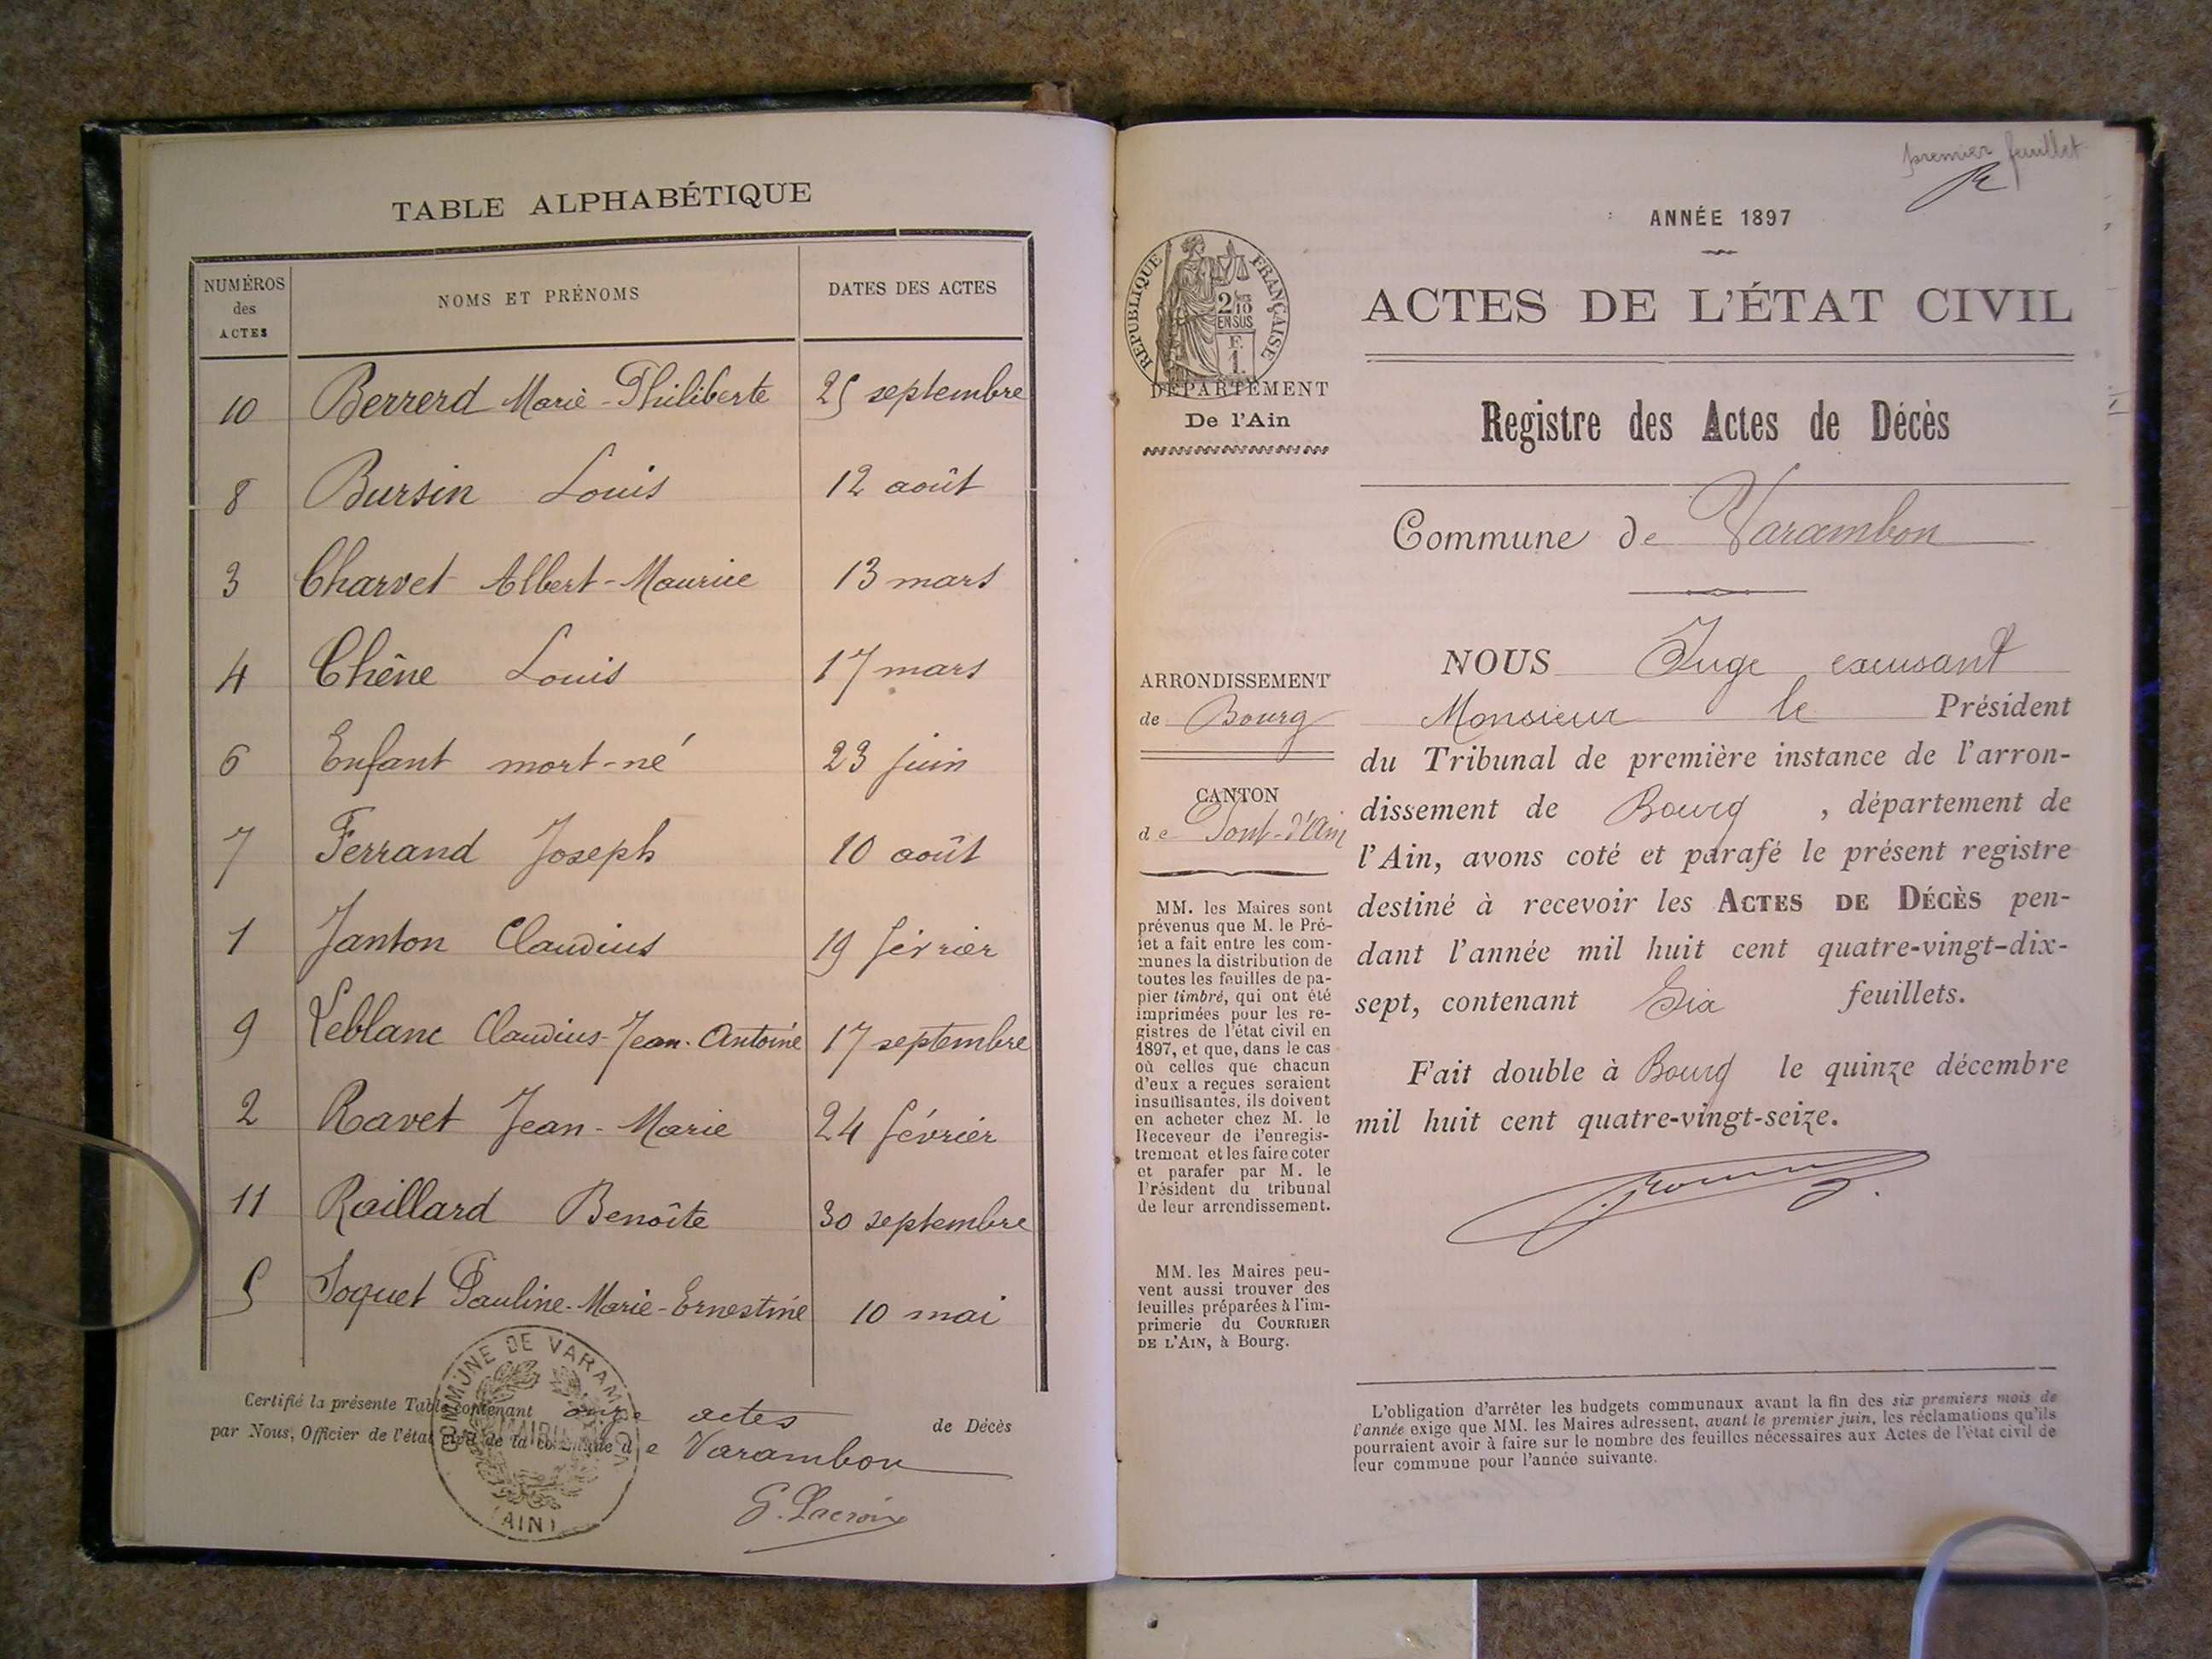 TABLE ALPHABÉTIQUE
NUMÉROS des ACTES
NOMS ET PRÉNOMS
DATES DES ACTES
10 Berrerd Marie-Philiberte 25 septembre
8 Bursin Louis 12 août
3 Charvet Albert-Maurice 13 mars
4 Chêne Louis 17 mars
6 Enfant mort-né 23 juin
7 Ferrand Joseph 10 août
1 Janton Claudius 19 février
9 Leblanc Claudius-Jean-Antoine 17 septembre
2 Ravet Jean-Marie 24 février
11 Raillard Benoîte 30 septembre
5 Soquet Pauline-Marie-Ernestine 10 mai
Certifié la présente Table contenant onze actes de Décès
par Nous, Officier de l'état civil de la commune de Varambon
COMMUNE DE VARAMBON
MAIRIE
(AIN)
G. Lacroix
premier feuillet
ANNÉE 1897
RÉPUBLIQUE FRANÇAISE
2/10
EN SUS
F.
1.
ACTES DE L'ÉTAT CIVIL
DÉPARTEMENT
De l'Ain
Registre des Actes de Décès
Commune de Varambon
ARRONDISSEMENT
de Bourg
CANTON
de Pont-d'Ain
MM. les Maires sont
prévenus que M. le Pré-
fet a fait entre les com-
munes la distribution de
toutes les feuilles de pa-
pier timbré, qui ont été
imprimées pour les re-
gistres de l'état civil en
1897, et que, dans le cas
où celles que chacun
d'eux a reçues seraient
insuffisantes, ils doivent
en acheter chez M. le
Receveur de l'enregis-
trement et les faire coter
et parafer par M. le
Président du tribunal
de leur arrondissement.
MM. les Maires peu-
vent aussi trouver des
feuilles préparées à l'im-
primerie du COURRIER
DE L'AIN, à Bourg.
NOUS Juge excusant
Monsieur le Président
du Tribunal de première instance de l'arron-
dissement de Bourg, département de
l'Ain, avons coté et parafé le présent registre
destiné à recevoir les ACTES DE DÉCÈS pen-
dant l'année mil huit cent quatre-vingt-dix-
sept, contenant Six feuillets.
Fait double à Bourg le quinze décembre
mil huit cent quatre-vingt-seize.
L'obligation d'arrêter les budgets communaux avant la fin des six premiers mois de
l'année exige que MM. les Maires adressent, avant le premier juin, les réclamations qu'ils
pourraient avoir à faire sur le nombre des feuilles nécessaires aux Actes de l'état civil de
leur commune pour l'année suivante.